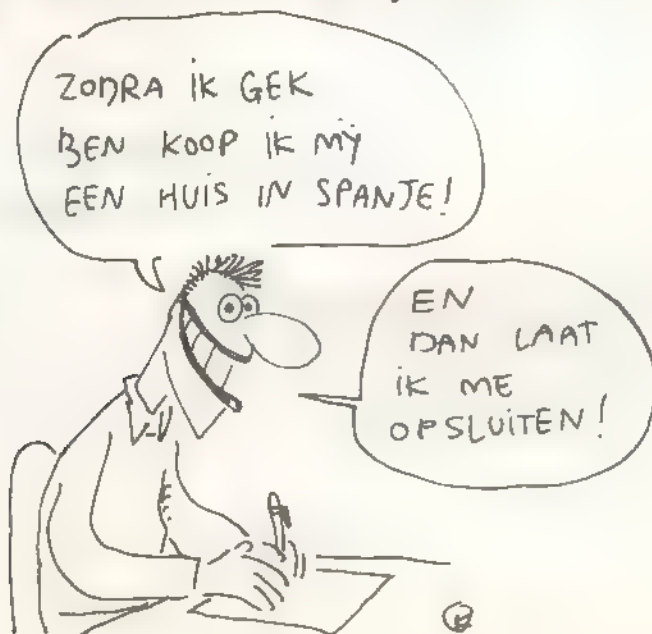 ZODRA iK GEK
BEN KOOP iK MŸ
EEN HUiS IN SPANJE!
EN
DAN LAAT
iK ME
OPSLUiTEN!